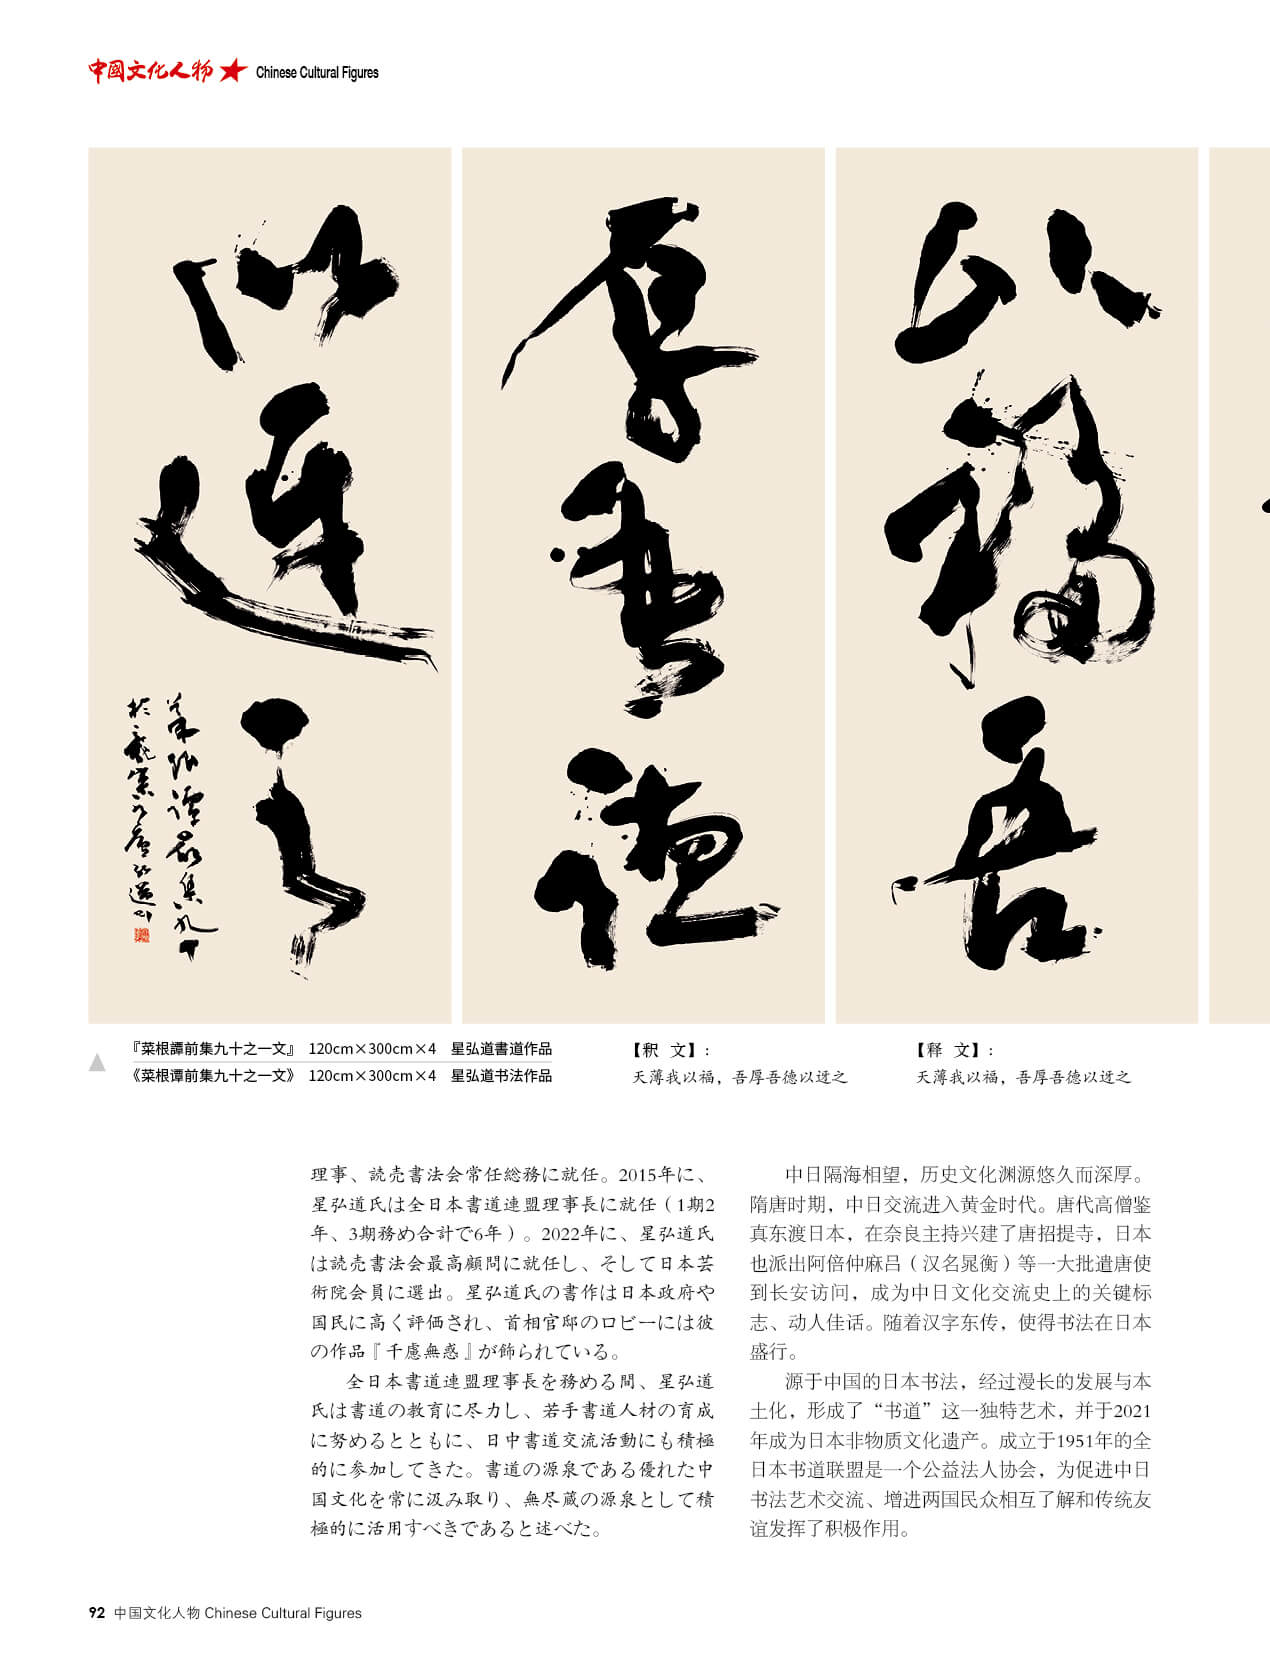 中國文化人物 Chinese Cultural Figures
以福吾
厚吾德
以迓之
菜根譚前集九十
『菜根譚前集九十之一文』 120cm×300cm×4 星弘道書道作品
《菜根谭前集九十之一文》 120cm×300cm×4 星弘道书法作品
【釈 文】：
天薄我以福，吾厚吾德以迓之
【释 文】：
天薄我以福，吾厚吾德以迓之
理事、読売書法会常任総務に就任。2015年に、
星弘道氏は全日本書道連盟理事長に就任（1期2
年、3期務め合計で6年）。2022年に、星弘道氏
は読売書法会最高顧問に就任し、そして日本芸
術院会員に選出。星弘道氏の書作は日本政府や
国民に高く評価され、首相官邸のロビーには彼
の作品『千慮無惑』が飾られている。
全日本書道連盟理事長を務める間、星弘道
氏は書道の教育に尽力し、若手書道人材の育成
に努めるとともに、日中書道交流活動にも積極
的に参加してきた。書道の源泉である優れた中
国文化を常に汲み取り、無尽蔵の源泉として積
極的に活用すべきであると述べた。
中日隔海相望，历史文化渊源悠久而深厚。
隋唐时期，中日交流进入黄金时代。唐代高僧鉴
真东渡日本，在奈良主持兴建了唐招提寺，日本
也派出阿倍仲麻吕（汉名晁衡）等一大批遣唐使
到长安访问，成为中日文化交流史上的关键标
志、动人佳话。随着汉字东传，使得书法在日本
盛行。
源于中国的日本书法，经过漫长的发展与本
土化，形成了“书道”这一独特艺术，并于2021
年成为日本非物质文化遗产。成立于1951年的全
日本书道联盟是一个公益法人协会，为促进中日
书法艺术交流、增进两国民众相互了解和传统友
谊发挥了积极作用。
92 中国文化人物 Chinese Cultural Figures